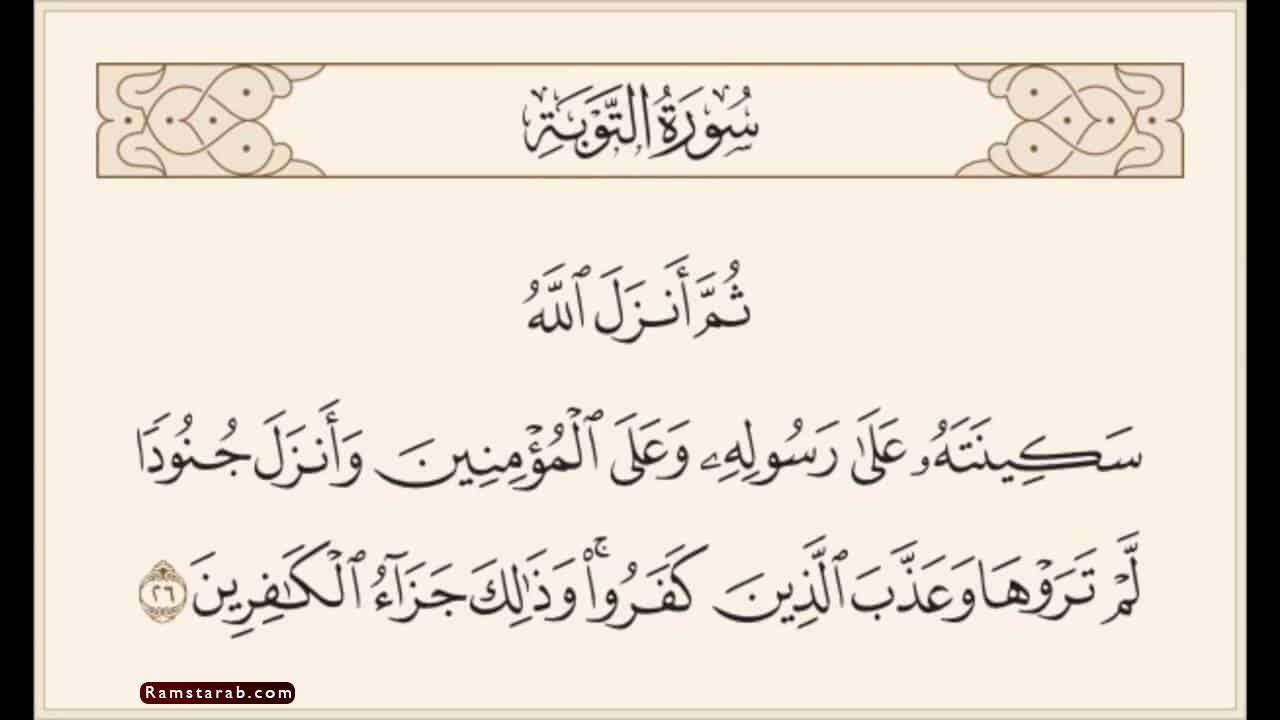 سُورَةُ التَّوْبَةِ
ثُمَّ أَنزَلَ ٱللَّهُ
سَكِينَتَهُۥ عَلَىٰ رَسُولِهِۦ وَعَلَى ٱلْمُؤْمِنِينَ وَأَنزَلَ جُنُودًا
لَّمْ تَرَوْهَا وَعَذَّبَ ٱلَّذِينَ كَفَرُوا۟ ۚ وَذَٰلِكَ جَزَآءُ ٱلْكَـٰفِرِينَ ٢٦
Ramstarab.com